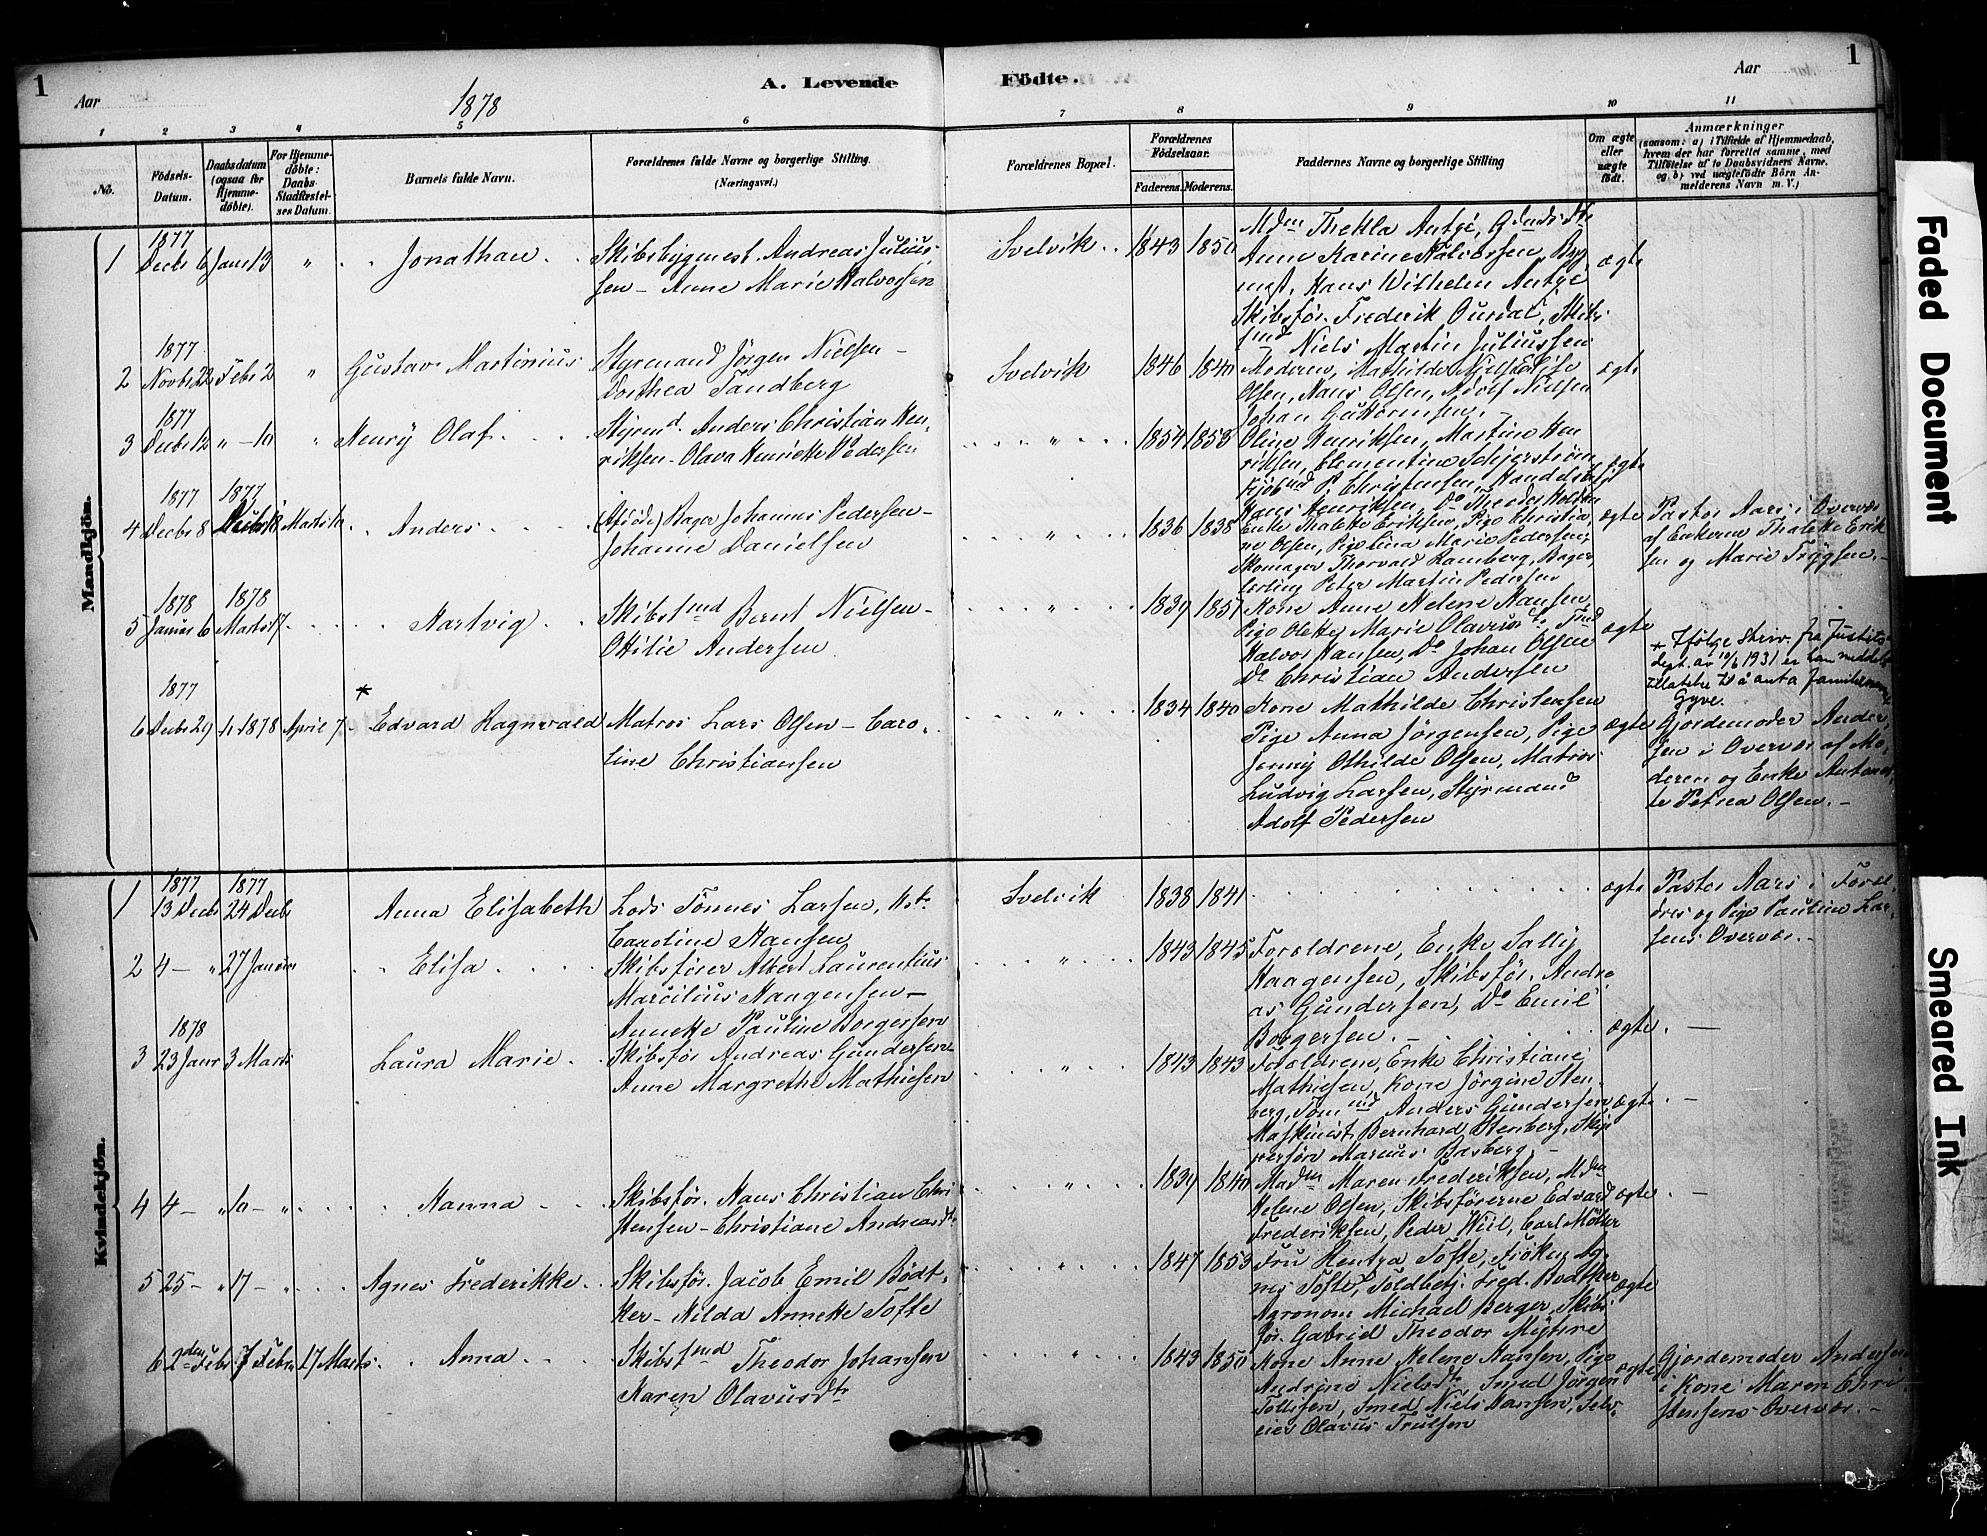 1
Aar
1878
A. Levende
Födte.
Aar
1
1
2
3
4
5
6
7
8
9
10
11
No.
Födsels-
Datum.
Daabsdatum
(ogsaa for
Hjemme-
döbte).
For Hjemme-
döbte:
Daabs-
Stadfæstel-
ses Datum.
Barnets fulde Navn.
Forældrenes fulde Navne og borgerlige Stilling.
(Næringsvei.)
Forældrenes Bopæl.
Forældrenes
Födselsaar.
Faderens.
Moderens.
Faddernes Navne og borgerlige Stilling
Om ægte
eller
uægte
født.
Anmærkninger
(saasom: a) i Tilfælde af Hjemmedaab,
hvem der har forrettet samme, med
Tilföielse af to Daabsvidners Navne.
og b) ved uægtefödte Börn An-
melderens Navn m. V.)
Mandkjön.
1
1877
Decbr 6
Janr 13
"
Jonathan
Skibsbygmest. Andreas Julius-
sen - Anne Marie Halvorsen
Svelvik
1843
1850
Anne Karine Halvorsen, Byg
mest, Hans Wilhelm Antze
Skibsför. Frederik Oursal, Skibs
md Niels Martin Juliussen
ægte
2
1877
Novbr 22
Febr 2
"
Gustav Martinius
Styrmand Jörgen Nielsen -
Dorthea Sandberg
Svelvik
1846
1840
Moderen, Mathilde
Olsen, Hans Olsen, Adolf Nielsen
Johan Guttormsen.
ægte
3
1877
Decbr 12
" - 10
"
Henry Olaf
Styrmd. Anders Christian Hen-
riksen - Olava Henriette Pedersen
"
1854
1853
Oline Henriksen, Martine Hen
riksen, Clementine Schjerström
Kjöbmd P. Christensen, Handelsbetj
Hans Henriksen, Do Theodor
ægte
4
1877
Decbr 8
1877
Decbr 18
Marts 10
Anders
(Afdöde) Bager Johannes Pedersen -
Johanne Danielsen
"
1836
1838
Enke Thalette Eriksen, Pige Christia-
ne Olsen, Pige Lina Marie Pedersen,
Skomager Thorvald Ramberg, Bager
lærling Peter Martin Pedersen
ægte
Pastor Aars i Overvær
af Enkerne Thalette Erik
sen og Marie Trygsen. -
5
1878
Januar 6
1878
Marts 17
Hartvig
Skibstmd Bernt Nielsen -
Ottilie Andersen
"
1839
1857
Kone Anne Helene Hansen,
Pige Olette Marie Olavusdt,
Halvor Hansen, Do Johan Olsen
Do Christian Andersen
ægte
* Ifölge skriv. fra Justits-
dept. av 10/6 1931 er han meddelt
tillatelse til å anta familienavnet
Gyve.
6
1877
Decbr 29
1/1 1878
April 7
*
Edvard Ragnvald
Matros Lars Olsen - Caro-
line Christiansen
"
1834
1840
Kone Mathilde Christensen
Pige Anna Jörgensen, Pige
Jenny Othilde Olsen, Matros
Ludvig Larsen, Styrmand
Adolf Pedersen
ægte
Gjordemoder Ander
sen i Overvær af Mo-
deren og Enke Antonet-
te Petrea Olsen. -
Kvindekjön.
1
1877
13 Decbr
1877
24 Decbr
Anna Elisabeth
Lods Tönnes Larsen, Hst.
Caroline Hansen
Svelvik
1838
1841
ægte
Pastor Aars i Forel-
dres og Pige Pauline Lar-
sens Overvær. -
2
4 - "
27 Januar
Elisa
Skibsförer Albert Laurentius
Marcilius Haagensen -
Annette Pauline Borgersen
"
1843
1845
Foreldrene, Enke Sally
Haagensen, Skibsför. Andre
as Gundersen, Do Emil
Borgersen. -
ægte
-
3
1878
23 Janr
3 Marts
Laura Marie
Skibsför Andreas Gundersen
Anne Margrethe Mathiesen
"
1843
1843
Foreldrene, Enke Christiane
Mathiesen, Kone Jörgine Sten-
berg, Tömmd Anders Gundersen,
Maskinist Bernhard Stenberg, Skip
persön Marius Basberg. -
ægte
-
4
4 - "
10 - "
Hanna
Skibsför. Hans Christian Chri
stensen - Christiane Andreasdt.
"
1839
1840
Madm Maren Frederiksen, Mdm
Helene Olsen, Skibsförerne Edvard
Frederiksen, Peder Wiil, Carl Möller
ægte
-
5
25 - "
17 - "
Agnes Frederikke
Skibsför. Jacob Emil Bödt-
ker - Hilda Annette Tofte
"
1847
1853
Fru Tofte, Fröken Ag-
nes Tofte, Toldbetj. Fred. Bödtker
Agronom Michael Berger, Skibs
för. Gabriel Theodor Myhre
ægte
6
2den Febr
7 Febr
17 Marts
Anna
Skibstmd Theodor Johansen
Karen Olavusdt.
"
1843
1850
Kone Anne Helene Hansen, Pige
Andrine Nielsdt, Smed Jörgen
Tollefsen, Smed Niels Hansen, Selv-
eier Olavus Trulsen
ægte
Gjordemoder Andersen
i Kone Maren Chri-
stensens Overvær. -
Faded Document
Smeared Ink